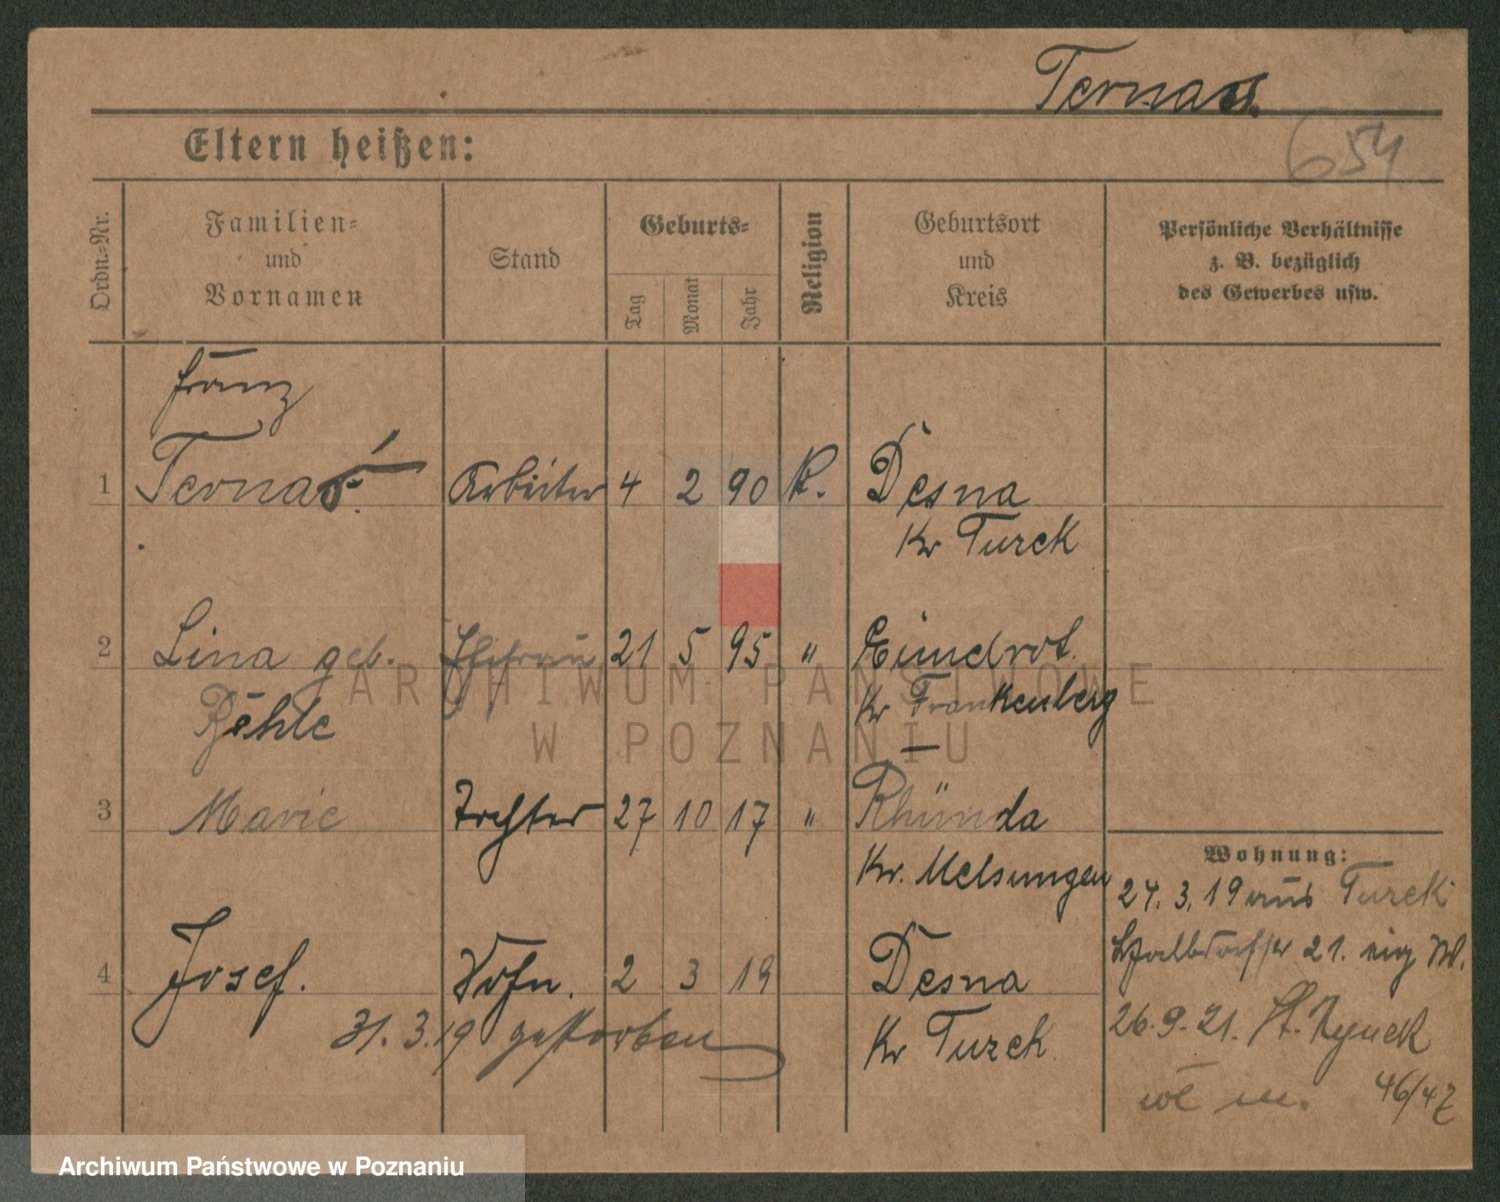 Ternas
654
Eltern heißen:
Ordn.-Nr.
Familien-
und
Vornamen
Stand
Geburts-
Tag
Monat
Jahr
Religion
Geburtsort
und
Kreis
Persönliche Verhältnisse
z. B. bezüglich
des Gewerbes usw.
Franz
1 Ternaś. Arbeiter 4 2 90 K. Desna
Kr Turek
2 Lina geb. Ehefrau 21 5 95 "
Kr Frankenberg
3 Marie Tochter 27 10 17 " Rhünda
Kr. Melsungen
4 Josef. Sohn. 2 3 19 Desna
31.3.19 gestorben
Kr Turek
Wohnung:
24.3.19 aus Turek
21.
26.9.21. St. Rynek
46/47
ARCHIWUM PAŃSTWOWE
W POZNANIU
Archiwum Państwowe w Poznaniu